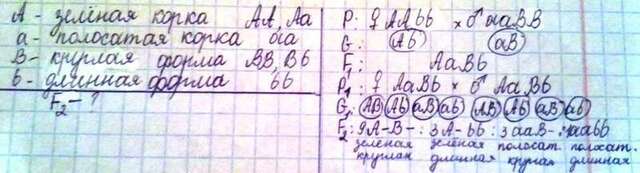 А - зелёная корка АА, Аа
а - полосатая корка аа
В - круглая форма ВВ, Вb
b - длинная форма bb
F₂ - ?
P: ♀ ААbb × ♂ ааВВ
G: Аb аВ
F₁: АаВb
P₁: ♀ АаВb × ♂ АаВb
G₁: АВ Аb аВ аb АВ Аb аВ аb
F₂: 9А-В- : 3А-bb : 3ааВ- : 1ааbb
зелёная зелёная полосат. полосат.
круглая длинная круглая длинная